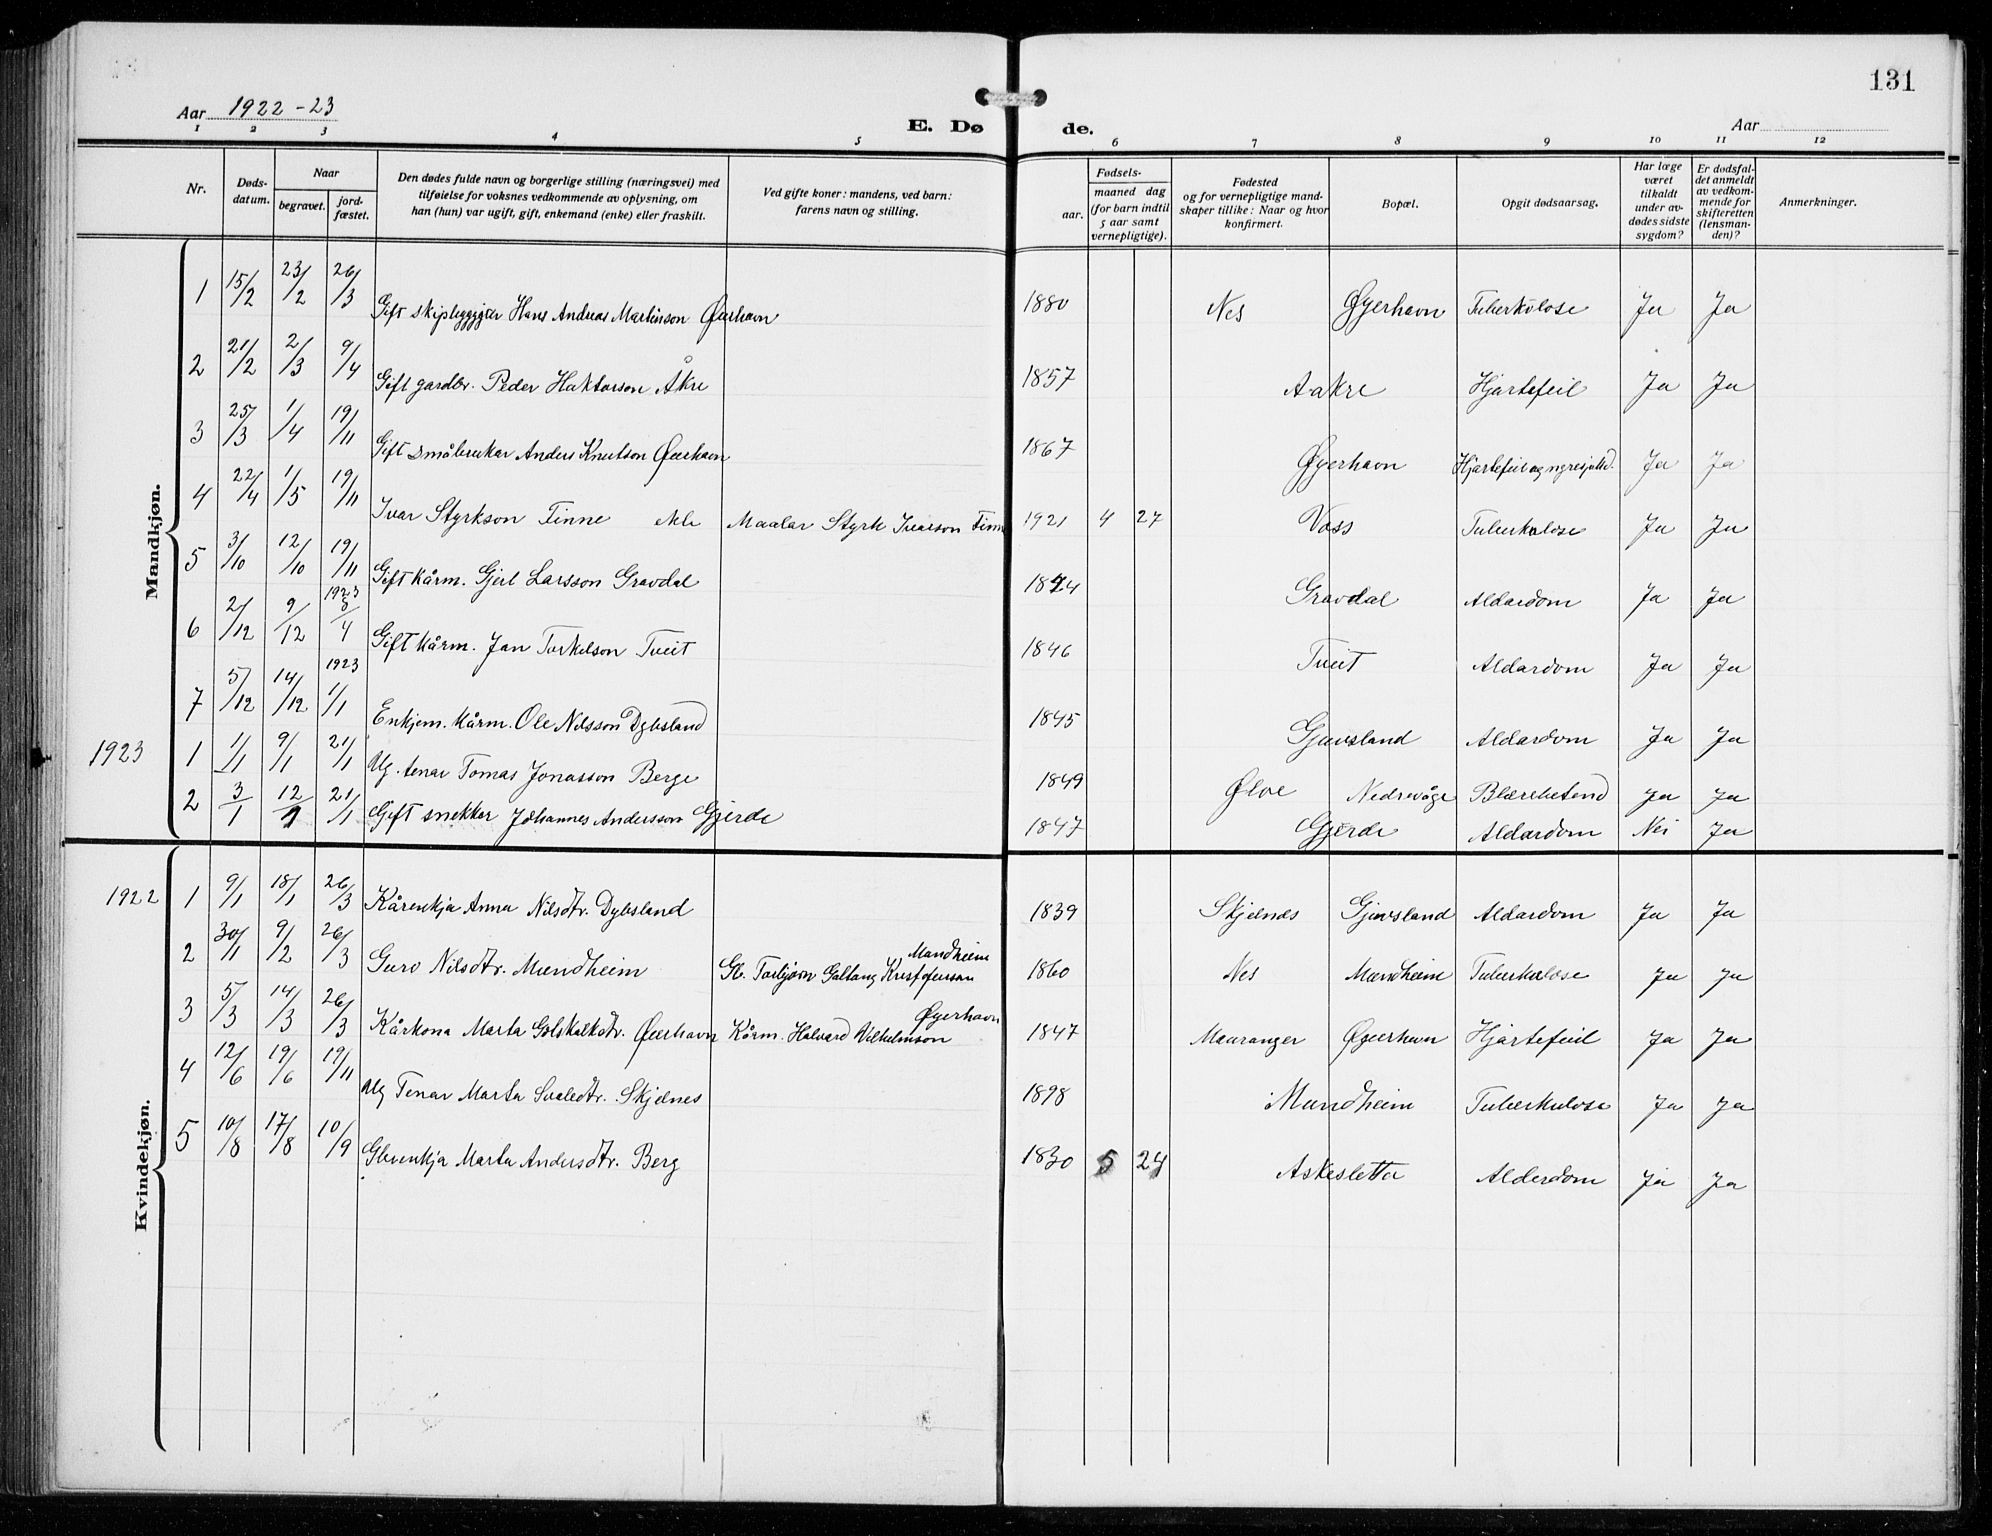 131
Aar 1922-23
E. Døde.
Aar
1 2 3 4 5 6 7 8 9 10 11 12
Nr.
Døds-datum.
Naar
begravet.
jord-fæstet.
Den dødes fulde navn og borgerlige stilling (næringsvei) med
tilføielse for voksnes vedkommende av oplysning, om
han (hun) var ugift, gift, enkemand (enke) eller fraskilt.
Ved gifte koner: mandens, ved barn:
farens navn og stilling.
Fødsels-
aar.
maaned dag
(for barn indtil
5 aar samt
vernepligtige).
Fødested
og for vernepligtige mand-
skaper tillike: Naar og hvor
konfirmert.
Bopæl.
Opgit dødsaarsag.
Har læge
været
tilkaldt
under av-
dødes sidste
sygdom?
Er dødsfal-
det anmeldt
av vedkom-
mende for
skifteretten
(lensman-
den)?
Anmerkninger.
Mandkjøn.
1 15/2 23/2 26/3 Gift skipsbyggjar Hans Andreas Martinson Øierhavn 1880 Nes Øyerhavn Tuberkulose Ja Ja
2 21/2 2/3 9/4 Gift gardbr. Peder Haktorson Åkre 1857 Aakre Hjartefeil Ja Ja
3 25/3 1/4 19/11 Gift småbrukar Anders Knutson Øierhavn 1867 Øyerhavn Hjartefeil og nyresjukd. Ja Ja
4 22/4 1/5 19/11 Ivar Styrkson Finne Maalar Styrk Ivarson Finn 1921 4 27 Voss Tuberkulose Ja Ja
5 3/10 12/10 19/11 Gift kårm. Gjert Larsson Gravdal Gravdal Aldardom Ja Ja
6 2/12 9/12 1923 8/4 Gift kårm. Jan Torkelson Tveit 1846 Tveit Aldardom Ja Ja
7 5/12 14/12 1923 1/1 Enkjem. kårm. Ole Nilsson Dybsland 1845 Gjuvsland Aldardom Ja Ja
1923 1 1/1 9/1 21/1 Ug. tenar Tomas Jonasson Berge 1849 Ølve Nedrevåge Blærebetend Ja Ja
2 3/1 12/1 21/1 Gift snekkar Johannes Andersson Gjerde 1847 Gjerde Aldardom Nei Ja
Kvindekjøn.
1922 1 9/1 18/1 26/3 Kårenkja Anna Nilsdtr. Dybsland 1839 Skjelnes Gjuvsland Aldardom Ja Ja
2 30/1 9/2 26/3 Guro Nilsdtr. Mundheim Gb. Torbjørn Galtung Kristoferson Mundheim 1860 Nes Mundheim Tuberkulose Ja Ja
3 5/3 14/3 26/3 Kårkona Marta Gotskalksdtr. Øierhavn Kårm. Halvard Vilhelmson Øyerhavn 1847 Mauranger Øyerhavn Hjartefeil Ja Ja
4 12/6 19/6 19/11 Ug Tenar Marta Svaledtr. Skjelnes 1898 Mundheim Tuberkulose Ja Ja
5 10/8 17/8 10/9 Marta Andersdtr. Berg 1830 5 24 Askesletta Alderdom Ja Ja